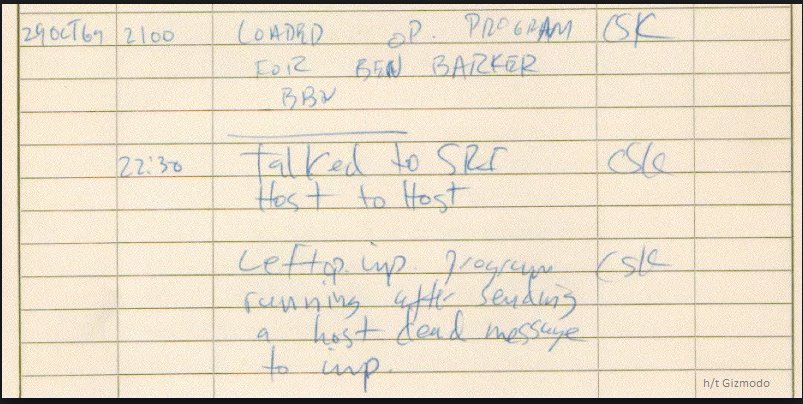 29OCT69 2100 LOADED OP. PROGRAM CSK
FOR BEN BARKER
BBN
22:30 Talked to SRI CSK
Host to Host
Left op. imp. program CSK
running after sending
a host dead message
to imp.
h/t Gizmodo